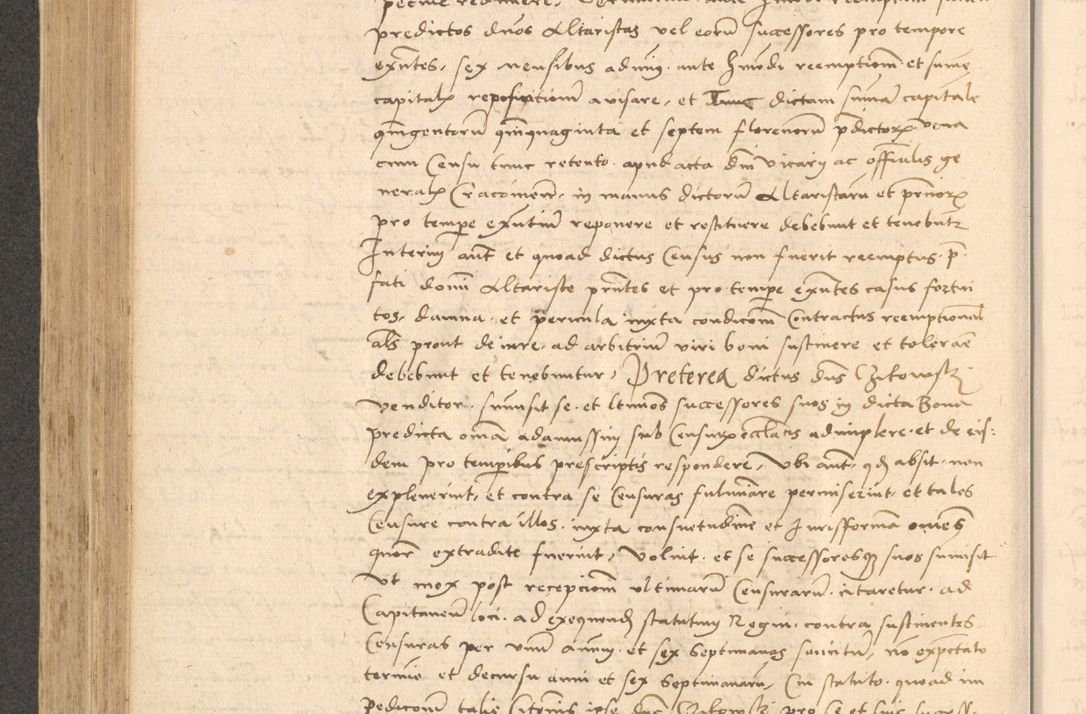 predictos dnos Altaristas vel eorū successores pro tempore
exntes, sex mensibus ad min. ante hmodi reemptionē et sume
capitalis reposicionem avisare, et tunc dictam sumā capitale
qīngentorū qīnquaginta et septem florenorū pdictorx vna
cum Censu tunc retento. apud acta dni vicarij ac offīalis ge
neralis Cracovien. in manus dictorū Altaristarū et prmorx
pro tempe exntiū reponere et restituere debebunt et tenebunt
Interim aūt et quoad dictus Census non fuerit reemptus. p
fati domi Altariste prntes et pro tempe exntes casus fortui
tos, damna. et pericula iuxta condicionē contractus reemptional
als prout de iure. ad arbitrium viri boni sustinere et tolerare
debebunt et tenebuntur, Preterea dictus dns Czikowski
venditor. sumisit se. et ltimos successores suos in dicta Bona
predicta omā adamussim sub Censurx ecclatis adimplere. et de eis:
dem pro temporibus prescriptis respondere, Vbi aūt. qd absit. non
expleverint, et contra se Censuras fulminare permiserint. et tales
Censure contra illos. iuxta consuetudinē et Iurisformā omnes
quore extradite fuerint, Voluit. et se successoresqz suos sumisit
Vt mox post recepcionem vltimarū Censurarū. citaretur. ad
Capitaneū loci. ad exequendū statutum Regni. contra sustinentes
Censuras per vnū annū. et sex Septimanas sancitū, nō expectato
termino et decursu anni et sex Septimanarū, Cui statuto. quoad im
pedicionē talis Citationis ipse dns Czikowski pro se et suis success